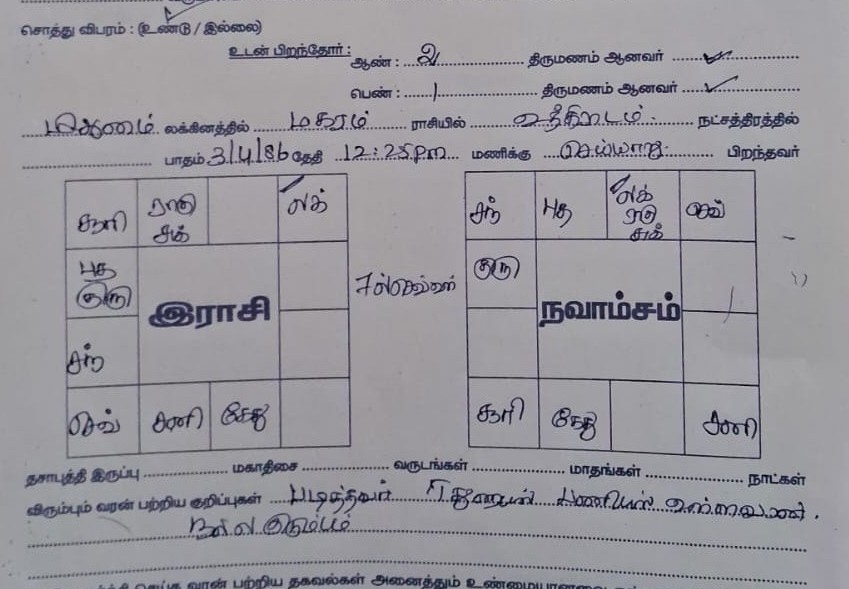 சொத்து விபரம் : (உண்டு / இல்லை)
உடன் பிறந்தோர் : ஆண் : 2 திருமணம் ஆனவர்
பெண் : 1 திருமணம் ஆனவர்
மிதுனம் லக்கினத்தில் மகரம் ராசியில் உத்திராடம் நட்சத்திரத்தில்
பாதம் 3/4/86 தேதி 12:25 pm மணிக்கு செய்யாறு பிறந்தவர்
சூரி ராகு சுக் லக்
புத குரு
இராசி
சந்
செவ் சனி கேது
7ல் செவ்வாய்
சந் புத லக் ராகு சுக் செவ்
குரு
நவாம்சம்
சூரி கேது சனி
தசாபுத்தி இருப்பு மகாதிசை வருடங்கள் மாதங்கள் நாட்கள்
விரும்பும் வரன் பற்றிய குறிப்புகள் படித்தவர்
நல்ல குடும்பம்
வரன் பற்றிய தகவல்கள் அனைத்தும்